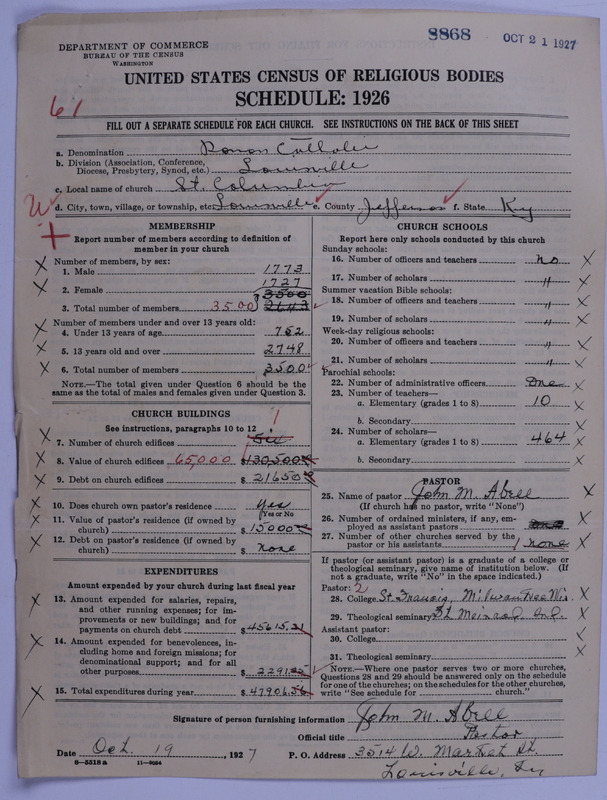 8868 OCT 21 1927
DEPARTMENT OF COMMERCE
BUREAU OF THE CENSUS
WASHINGTON
UNITED STATES CENSUS OF RELIGIOUS BODIES
SCHEDULE: 1926
61
FILL OUT A SEPARATE SCHEDULE FOR EACH CHURCH. SEE INSTRUCTIONS ON THE BACK OF THIS SHEET
a. Denomination Roman Catholic
b. Division (Association, Conference, Diocese, Presbytery, Synod, etc.) Louisville
c. Local name of church St. Columba
d. City, town, village, or township, etc. Louisville e. County Jefferson f. State Ky
MEMBERSHIP
Report number of members according to definition of
member in your church
Number of members, by sex:
1. Male 1773
2. Female 1727
3500
3. Total number of members 3500 2643
Number of members under and over 13 years old:
4. Under 13 years of age 752
5. 13 years old and over 2748
6. Total number of members 3500
NOTE.—The total given under Question 6 should be the
same as the total of males and females given under Question 3.
CHURCH BUILDINGS
See instructions, paragraphs 10 to 12
7. Number of church edifices 1
8. Value of church edifices 65,000 $130,500
9. Debt on church edifices $21650
10. Does church own pastor's residence Yes
(Yes or No)
11. Value of pastor's residence (if owned by
church) $15000
12. Debt on pastor's residence (if owned by
church) $ none
EXPENDITURES
Amount expended by your church during last fiscal year
13. Amount expended for salaries, repairs,
and other running expenses; for im-
provements or new buildings; and for
payments on church debt $45615.31
14. Amount expended for benevolences, in-
cluding home and foreign missions; for
denominational support; and for all
other purposes $2291.25
15. Total expenditures during year $47906.56
CHURCH SCHOOLS
Report here only schools conducted by this church
Sunday schools:
16. Number of officers and teachers no
17. Number of scholars "
Summer vacation Bible schools:
18. Number of officers and teachers "
19. Number of scholars "
Week-day religious schools:
20. Number of officers and teachers "
21. Number of scholars "
Parochial schools:
22. Number of administrative officers one
23. Number of teachers—
a. Elementary (grades 1 to 8) 10
b. Secondary
24. Number of scholars—
a. Elementary (grades 1 to 8) 464
b. Secondary
PASTOR
25. Name of pastor John M. Abell
(If church has no pastor, write "None")
26. Number of ordained ministers, if any, em-
ployed as assistant pastors
27. Number of other churches served by the
pastor or his assistants 1 none
If pastor (or assistant pastor) is a graduate of a college or
theological seminary, give name of institution below. (If
not a graduate, write "No" in the space indicated.)
Pastor: 2
28. College St. Francis, Milwaukee Wis.
29. Theological seminary St Meinrad, Ind.
Assistant pastor:
30. College
31. Theological seminary
NOTE.—Where one pastor serves two or more churches,
Questions 28 and 29 should be answered only on the schedule
for one of the churches; on the schedules for the other churches,
write "See schedule for church."
Signature of person furnishing information John M. Abell
Official title Pastor
Date Oct. 19, 1927 P. O. Address 3514 W. Market St.
8—5518a 11—9034 Louisville, Ky